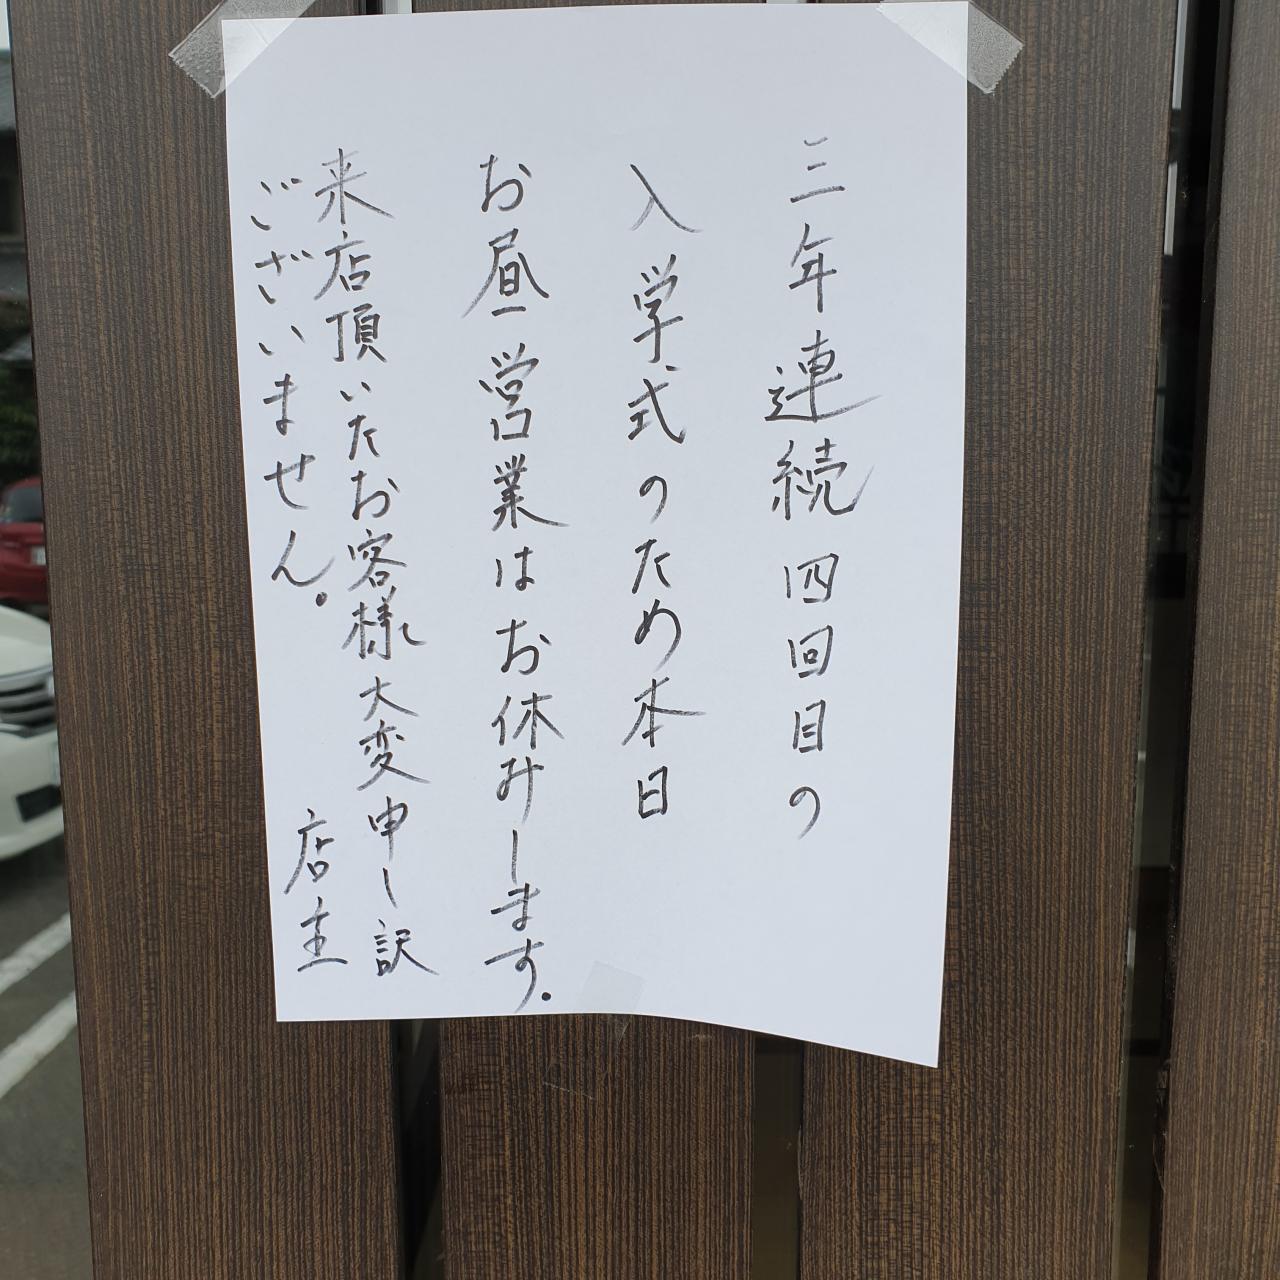 三年連続四回目の
入学式のため本日
お昼営業はお休みします.
来店頂いたお客様大変申し訳
ございません.
店主